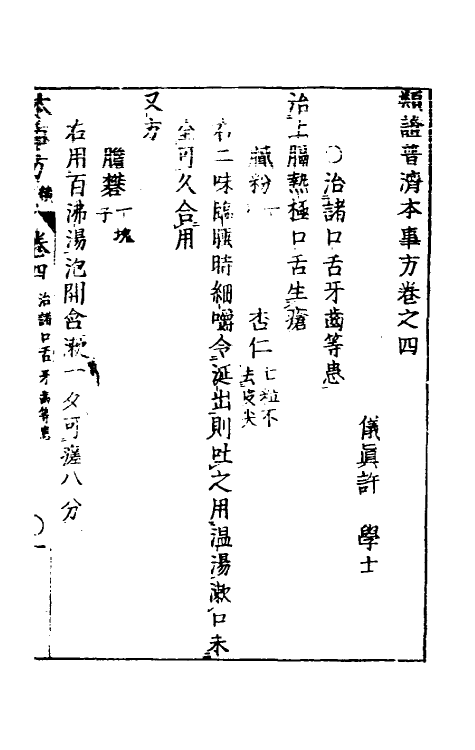 類證普濟本事方卷之四
儀眞許 學士
○治諸口舌牙齒等患
治上膈熱極口舌生瘡
膩粉一 杏仁七粒不去皮尖
右二味臨臥時細嚼令涎出則吐之用温湯漱口未
全可久合用
又方
膽礬一塊子
右用百沸湯泡開含漱一夕可瘥八分
本事方 卷四 治諸口舌牙齒等患 一